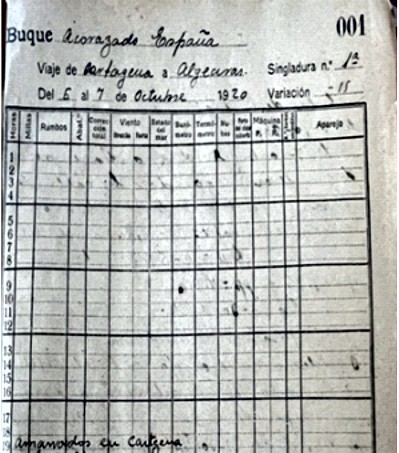 001
Buque Acorazado España
Viaje de Cartagena a Algeciras. Singladura n.º 1ª
Del 6 al 7 de Octubre 1920 Variación -15
Horas Millas Rumbos Abat. Corrección total Viento Estado del mar Barómetro Termómetro Nubes Máquina Aparejo
Dirección Fuerza
1
2
3
4
5
6
7
8
9
10
11
12
13
14
15
16
17
18
19 Amarrados en Cartagena